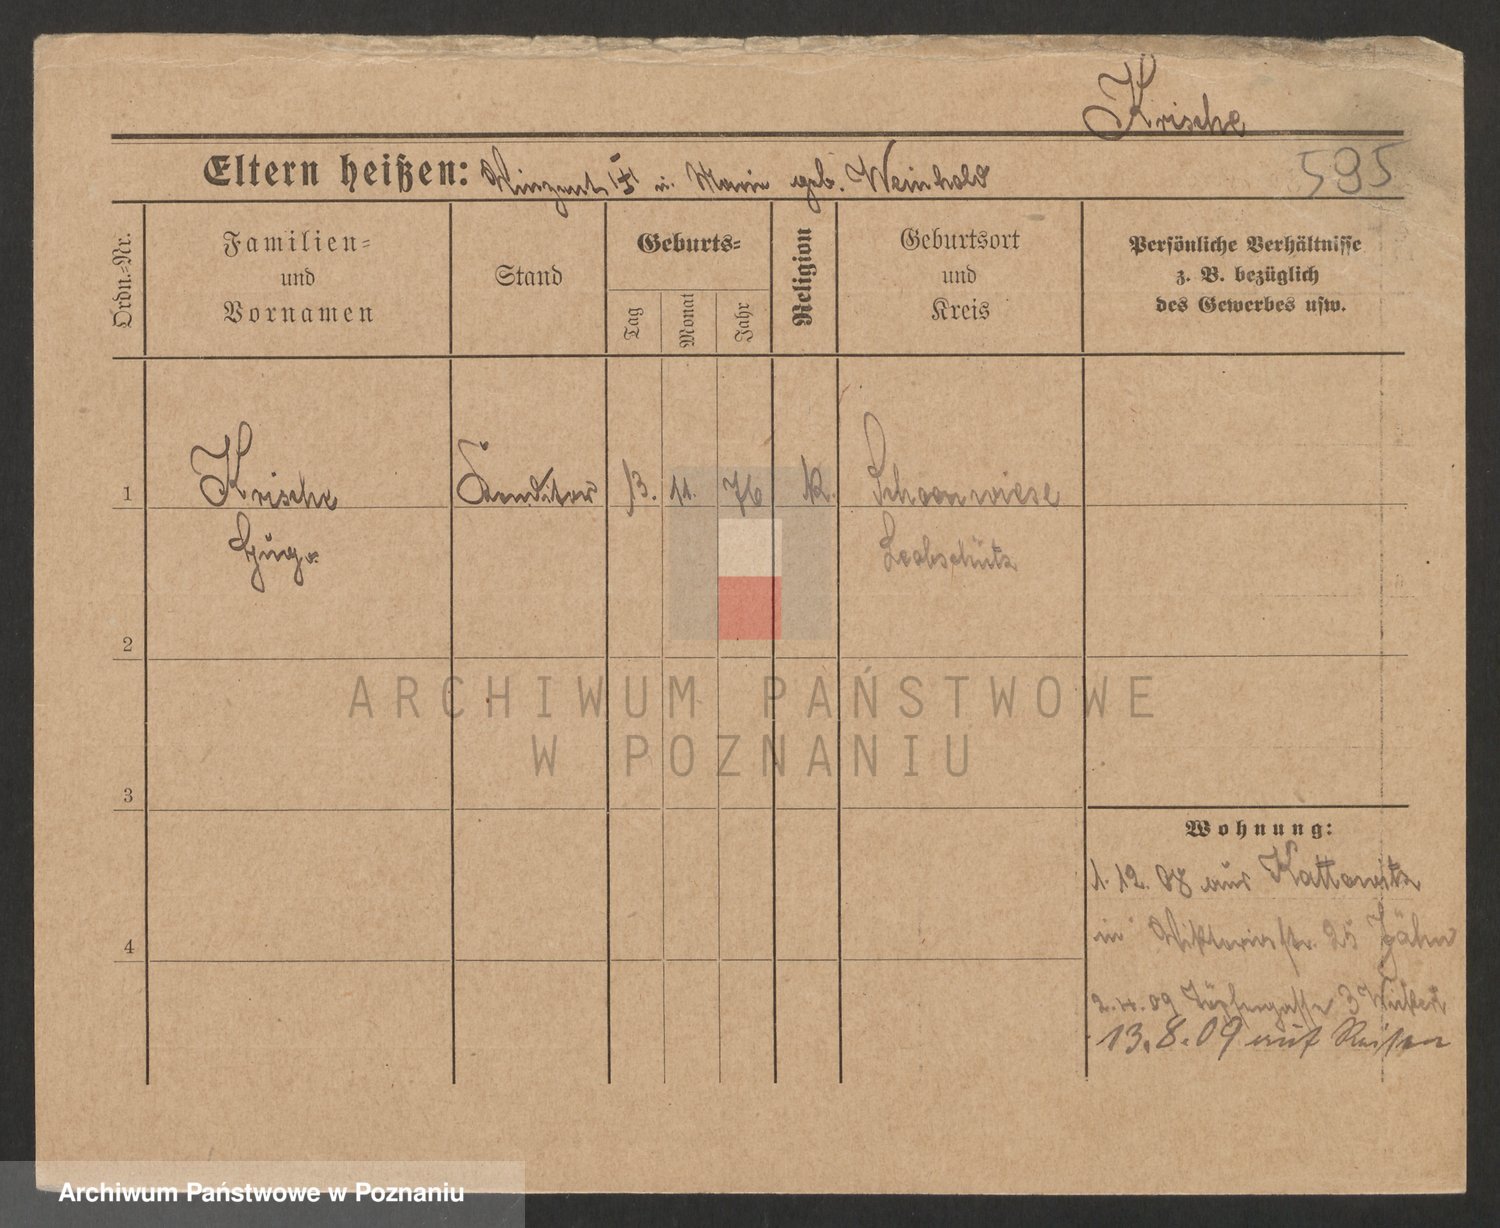 Krische
595
Eltern heißen: Vinzent (†) u. Marie geb. Weinhold
Ordn.=Nr.
Familien=
und
Vornamen
Stand
Geburts=
Tag
Monat
Jahr
Religion
Geburtsort
und
Kreis
Persönliche Verhältnisse
z. B. bezüglich
des Gewerbes usw.
1
Krische
Conditor
13.
11.
76
k.
Schoenwiese
Hugo
Leobschütz
2
ARCHIWUM PAŃSTWOWE
W POZNANIU
3
Wohnung:
1. 12. 08 aus Kattowitz
in Viktoriastr. 25 Jähn
4
2. 4. 09 Töpfergasse 3
13. 8. 09 auf Reisen
Archiwum Państwowe w Poznaniu